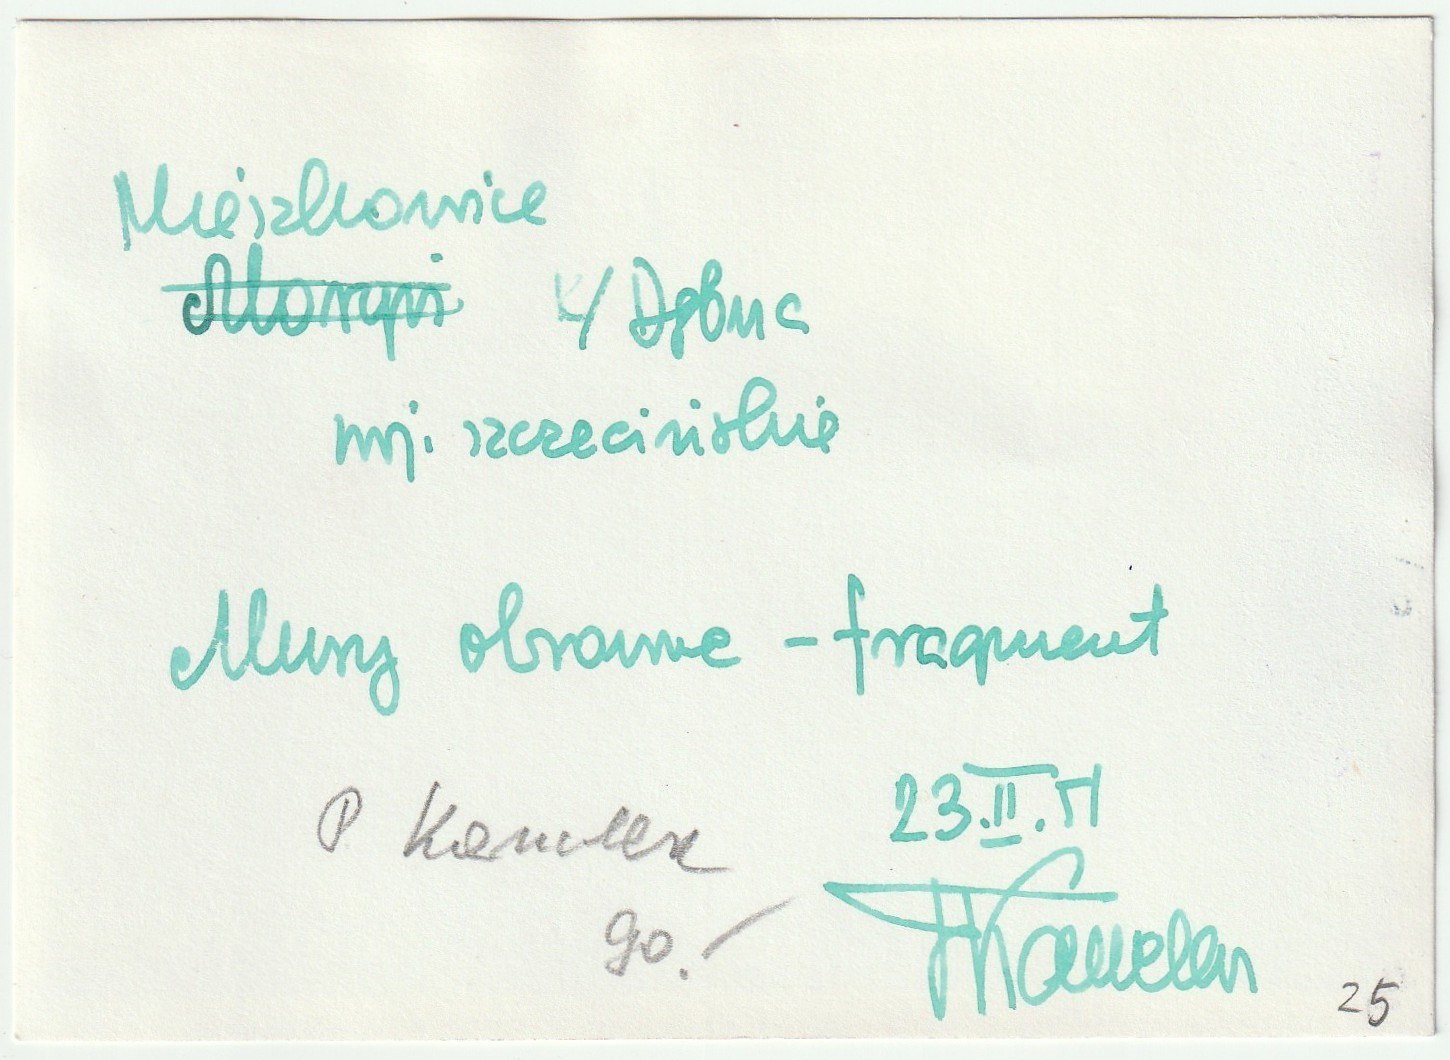 Mieszkowice
Moryń k/Dębna
woj. szczecińskie
Mury obronne - fragment
23.II.71
P
90.-
25